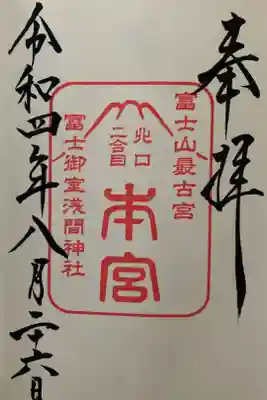 奉拝
富士山最古宮
北口
二合目
本宮
富士御室浅間神社
令和四年八月二十六日